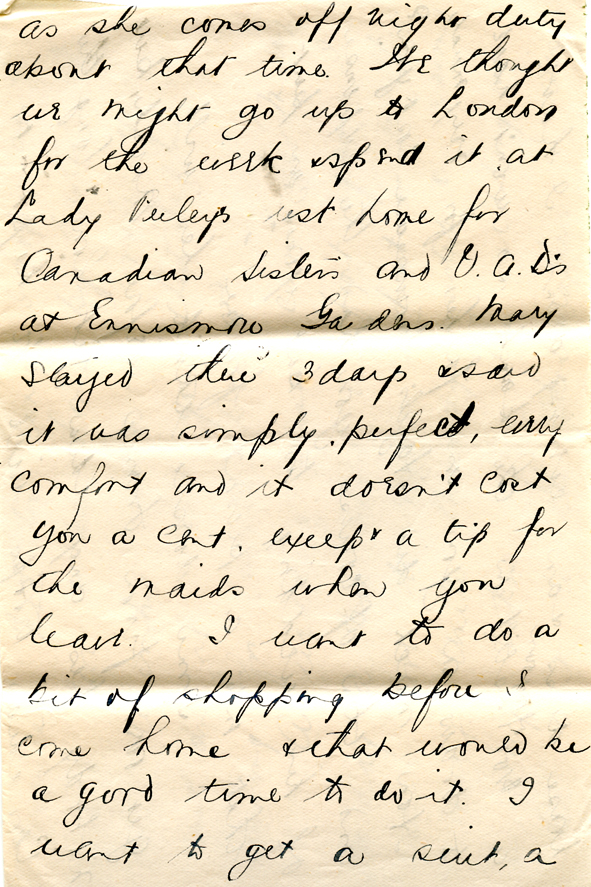 as she comes off night duty
about that time. We thought
we might go up to London
for the week & spend it at
Lady rest home for
Canadian Sisters and V.A.D's
at Ennismore Gardens. Mary
stayed there 3 days & said
it was simply perfect, every
comfort and it doesn't cost
you a cent, except a tip for
the maids when you
leave. I want to do a
bit of shopping before I
come home & that would be
a good time to do it. I
want to get a suit, a